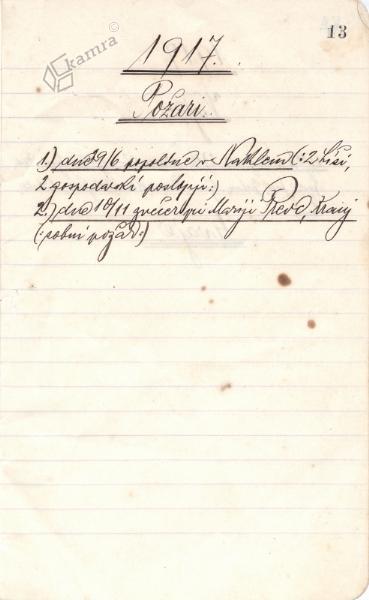 kamra ©
13
1917.
Požari.
1.) dne 9/6 popoldne v Naklem (: 2 hiši,
2 gospodarski poslopji :)
2.) dne 10/11 zvečer pri Mariji Prevc, Kranj
(: sobni požar :)